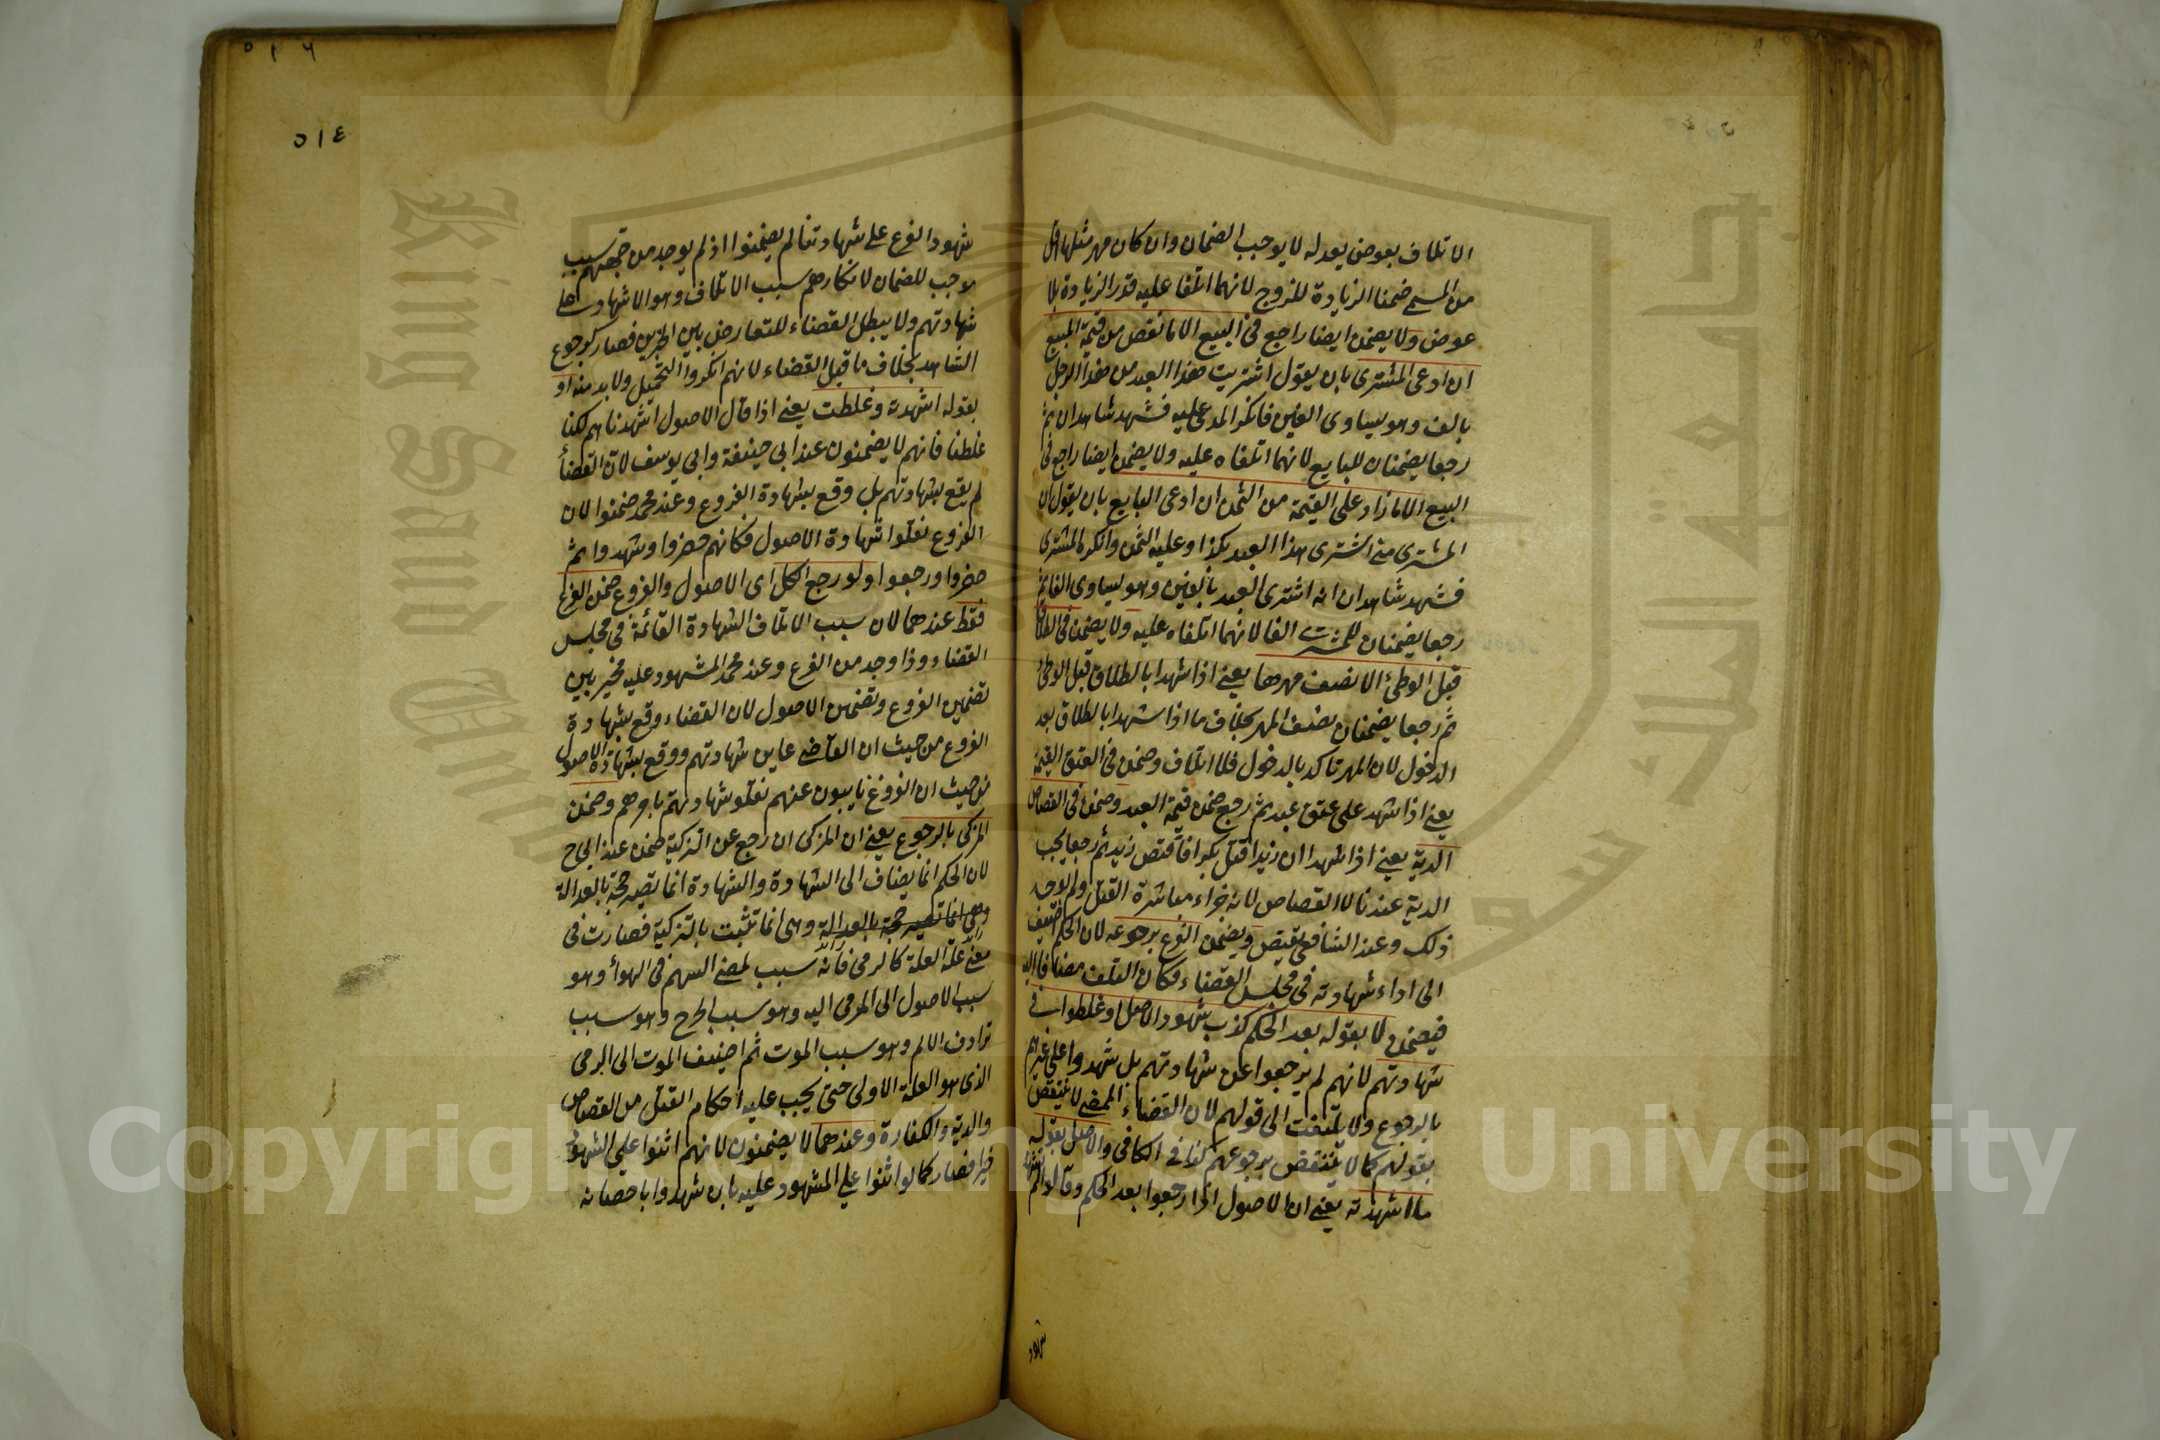 الاتلاف بعوض يعدله لا يوجب الضمان وان كان مهر مثلها اقل
من المسمى ضمنا الزيادة للزوج لانهما اتلفا عليه قدر الزيادة بلا
عوض ولا يضمن ايضا راجع في البيع الا ما نقص من قيمة المبيع
ان ادعى المشترى بان يقول اشتريت هذا العبد من هذا الرجل
بالف وهو يساوى الفين فانكر المدعى عليه فشهد شاهدان ثم
رجعا يضمنان للبايع لانهما اتلفاه عليه ولا يضمن ايضا راجع في
البيع الا ما زاد على القيمة من الثمن ان ادعى البايع بان يقول ان
المشترى منى اشترى هذا العبد بكذا وعليه الثمن وانكره المشترى
فشهد شاهدان انه اشترى العبد بالفين وهو يساوى الفا ثم
رجعا يضمنان للمشترى الفا لانهما اتلفاه عليه ولا يضمن في الطلاق
قبل الوطئ الا نصف مهرها يعنى اذا شهدا بالطلاق قبل الوطئ
ثم رجعا يضمنان نصف المهر بخلاف ما اذا شهدا بالطلاق بعد
الدخول لان المهر تاكد بالدخول فلا اتلاف وضمن في العتق القيمة
يعنى اذا شهد على عتق عبد ثم رجع ضمن قيمة العبد وضمن في القصاص
الدية يعنى اذا شهدا ان زيدا قتل بكرا فاقتص زيد ثم رجعا يجب
الدية عندنا لا القصاص لانه جزاء مباشرة القتل ولم يوجد
ذلك وعند الشافعى يقتص ويضمن الفرع برجوعه لان الحكم اضيف
الى اداء شهادته في مجلس القضاء فكان التلف مضافا اليه
فيضمن لا بقوله بعد الحكم كذب شهود الاصل او غلطوا في
شهادتهم لانهم لم يرجعوا عن شهادتهم بل شهدوا على غيرهم
بالرجوع ولا يلتفت الى قولهم لان القضاء الممضى لا ينتقض
بقولهم كما لا ينتقض برجوعهم كذا في الكافى والاصل بقوله
ما اشهدته يعنى ان الاصول اذا رجعوا بعد الحكم وقالوا لم نشهد
شهود
٥١٦
٥١٤
شهود الفرع على شهادتنا لم يضمنوا اذ لم يوجد من جهتهم سبب
موجب للضمان لانكارهم سبب الاتلاف وهو الاشهاد على
شهادتهم ولا يبطل القضاء للتعارض بين الخبرين فصار كرجوع
الشاهد بخلاف ما قبل القضاء لانهم انكروا التحميل ولا بد منه او
بقوله اشهدته وغلطت يعنى اذا قال الاصول اشهدناهم لكنا
غلطنا فانهم لا يضمنون عند ابى حنيفة وابى يوسف لان القضأ
لم يقع بشهادتهم بل وقع بشهادة الفروع وعند محمد ضمنوا لان
الفروع نقلوا شهادة الاصول فكانهم حضروا وشهدوا ثم
حضروا ورجعوا ولو رجع الكل اى الاصول والفروع ضمن الفرع
فقط عندهما لان سبب الاتلاف الشهادة القائمة في مجلس
القضاء وذا وجد من الفرع وعند محمد المشهود عليه مخير بين
تضمين الفروع وتضمين الاصول لان القضاء وقع بشهادة
الفروع من حيث ان القاضى عاين شهادتهم ووقع بشهادة الاصول
من حيث ان الفروع نايبون عنهم نقلوا شهادتهم بامرهم وضمن
المزكى بالرجوع يعنى ان المزكى ان رجع عن التزكية ضمن عند ابى ح
لان الحكم انما يضاف الى الشهادة والشهادة انما تصير حجة بالعدالة
وهى انما تصير حجة بالعدالة وهى انما تثبت بالتزكية فصارت في
معنى علة العلة كالرمى فانه سبب لمضى السهم في الهوأ وهو
سبب الوصول الى المرمى اليه وهو سبب الجرح وهو سبب
ترادف الالم وهو سبب الموت ثم اضيف الموت الى الرمى
الذى هو العلة الاولى حتى يجب عليه احكام القتل من القصاص
والدية والكفارة وعندهما لا يضمنون لانهم اثنوا على الشهود
خيرا فصار كما لو اثنوا على المشهود عليه بان شهدوا باحصانه
King Saud University
جامعة الملك سعود
Copyright © King Saud University